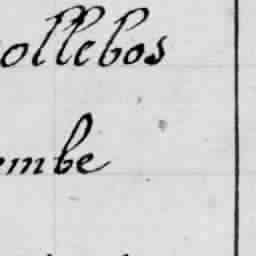 ollebos
embe